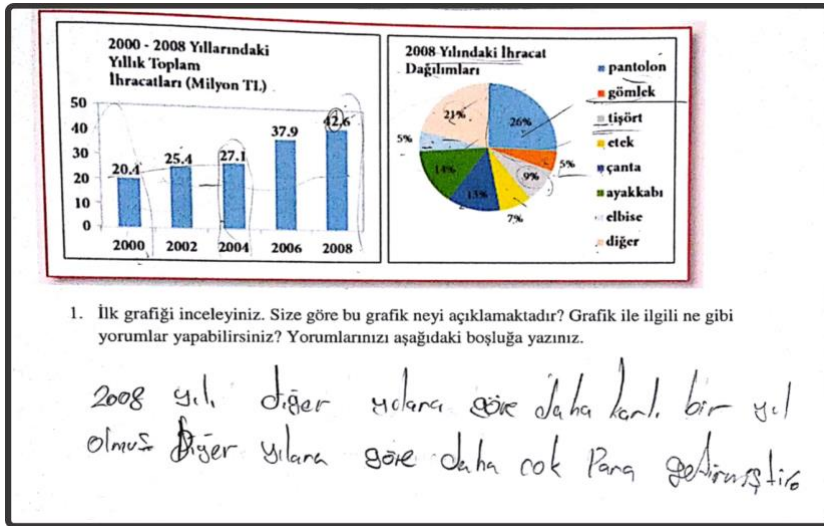 2000 - 2008 Yıllarındaki
Yıllık Toplam
İhracatları (Milyon TL)
50
40
30
20
10
0
20.4
25.4
27.1
37.9
42,6
2000 2002 2004 2006 2008
2008 Yılındaki İhracat
Dağılımları
21%
26%
5%
5%
14%
9%
13%
7%
pantolon
gömlek
tişört
etek
çanta
ayakkabı
elbise
diğer
1. İlk grafiği inceleyiniz. Size göre bu grafik neyi açıklamaktadır? Grafik ile ilgili ne gibi
yorumlar yapabilirsiniz? Yorumlarınızı aşağıdaki boşluğa yazınız.
2008 yılı diğer yılara göre daha karlı bir yıl
olmuş Diğer yılara göre daha cok Para getirmiştir.